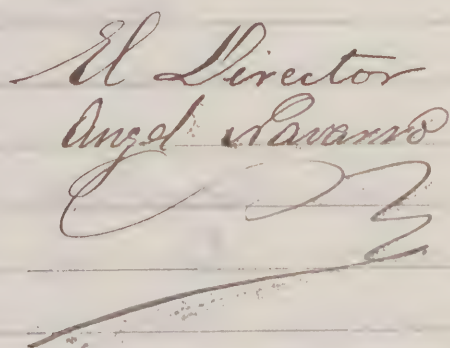 El Director
Angel Navarro